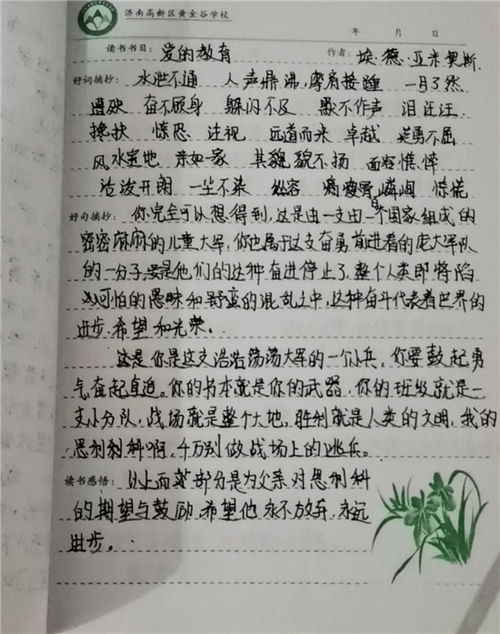 济南高新区黄金谷学校
年 月 日
读书书目：爱的教育 作者：埃·德·亚米契斯
好词摘抄：水泄不通 人声鼎沸，摩肩接踵 一目了然
遭殃 奋不顾身 躲闪不及 默不作声 泪汪汪
搀扶 惊恐 注视 远道而来 卓越 英勇不屈
风水宝地 亲如一家 其貌不扬 面容憔悴
一尘不染 瘦骨嶙峋 惊慌
好句摘抄：你完全可以想得到，这是由一支由一个国家组成的
密密麻麻的儿童大军，你也属于这支奋勇前进着的庞大军队
的一分子，要是他们的这种奋进停止了，整个人类即将陷
入可怕的愚昧和野蛮的混乱之中，这种奋斗代表着世界的
进步、希望和光荣。
这是你是这支浩浩荡荡大军的一个小兵，你要鼓起勇
气奋起直追。你的书本就是你的武器，你的班级就是一
支小分队，战场就是整个大地，胜利就是人类的文明，我的
恩利利科啊，千万别做战场上的逃兵。
读书感悟：以上两部分是为父亲对恩利科
的期望与鼓励，希望他永不放弃，永远
进步。